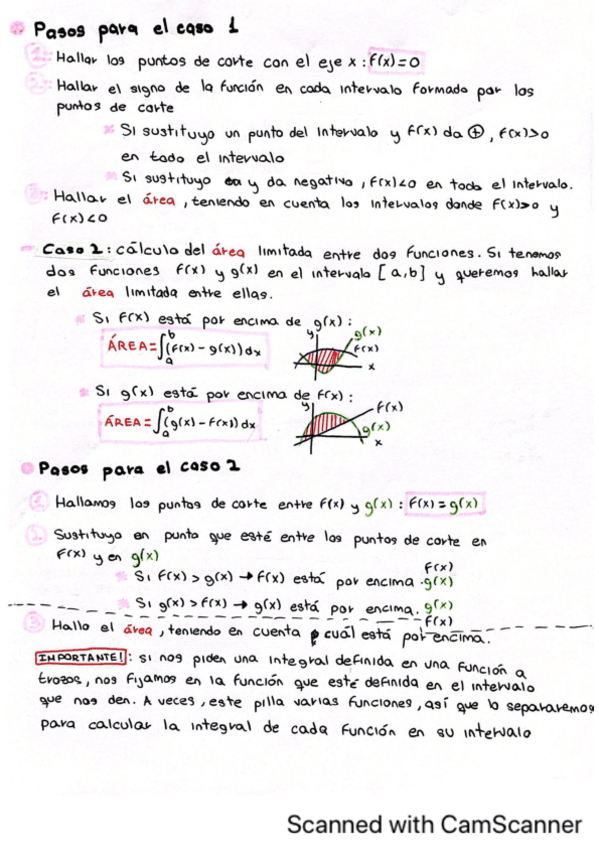 Pasos para el caso 1
1: Hallar los puntos de corte con el eje x : f(x)=0
2: Hallar el signo de la función en cada intervalo formado por los
puntos de corte
Si sustituyo un punto del intervalo y f(x) da ⊕, f(x)>0
en todo el intervalo
Si sustituyo y da negativo, f(x)<0 en todo el intervalo.
3: Hallar el área, teniendo en cuenta los intervalos donde f(x)>0 y
f(x)<0
Caso 2: cálculo del área limitada entre dos funciones. Si tenemos
dos funciones f(x) y g(x) en el intervalo [a,b] y queremos hallar
el área limitada entre ellas.
Si f(x) está por encima de g(x):
ÁREA=∫ₐᵇ(f(x) - g(x))dx
y g(x)
f(x)
x
Si g(x) está por encima de f(x):
ÁREA=∫ₐᵇ(g(x) - f(x))dx
y f(x)
g(x)
x
Pasos para el caso 2
1 Hallamos los puntos de corte entre f(x) y g(x) : f(x)=g(x)
2. Sustituyo en punto que esté entre los puntos de corte en
f(x) y en g(x)
Si f(x) > g(x) → f(x) está por encima. f(x)
g(x)
Si g(x) > f(x) → g(x) está por encima. g(x)
f(x)
3 Hallo el área, teniendo en cuenta cuál está por encima.
IMPORTANTE!: si nos piden una integral definida en una función a
trozos, nos fijamos en la función que esté definida en el intervalo
que nos den. A veces, este pilla varias funciones, así que lo separaremos
para calcular la integral de cada función en su intervalo
Scanned with CamScanner